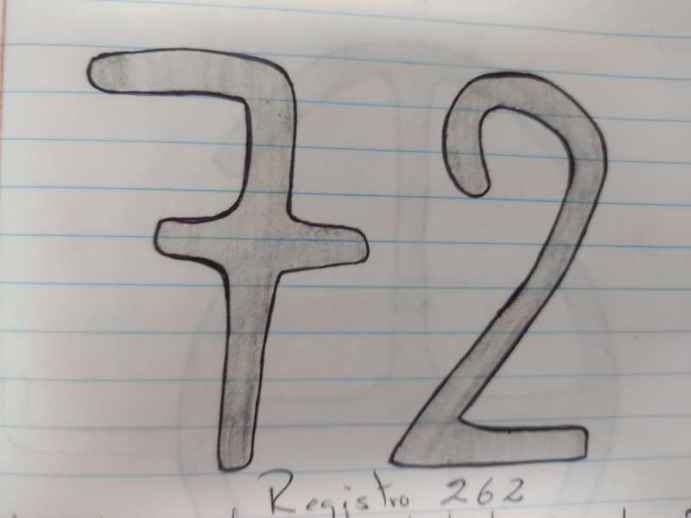 72
Registro 262